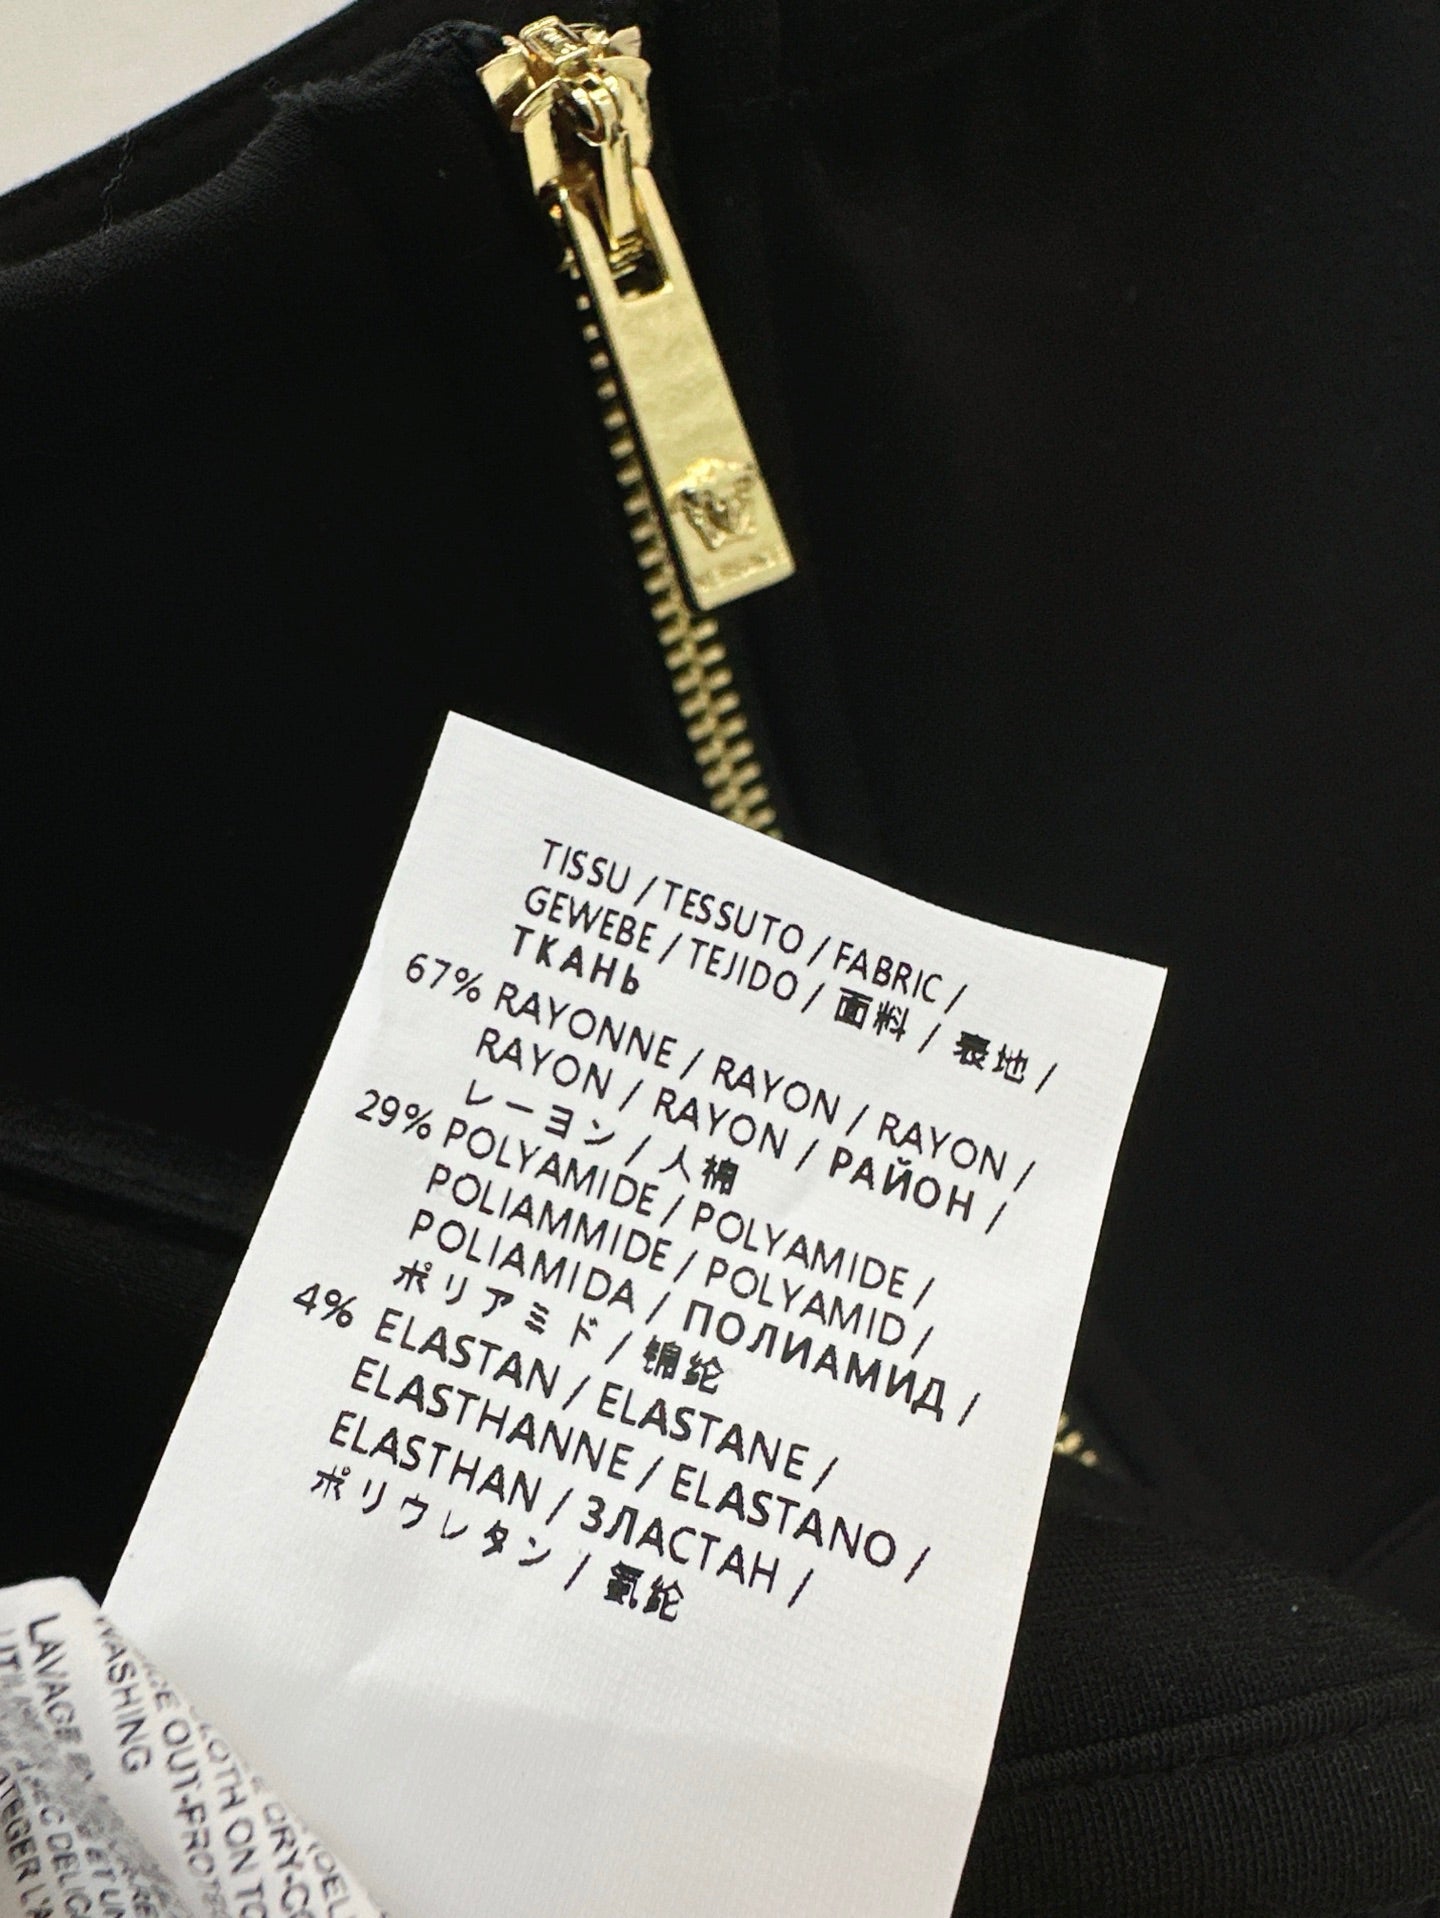 TISSU / TESSUTO / FABRIC /
GEWEBE / TEJIDO / 面料 / 表地 /
ТКАНЬ
67% RAYONNE / RAYON / RAYON /
RAYON / RAYON / РАЙОН /
レーヨン / 人棉
29% POLYAMIDE / POLYAMIDE /
POLIAMMIDE / POLYAMID /
POLIAMIDA / ПОЛИАМИД /
ポリアミド / 锦纶
4% ELASTAN / ELASTANE /
ELASTHANNE / ELASTANO /
ELASTHAN / ЗЛАСТАН /
ポリウレタン / 氨纶
WASHING
OUT-
CLOTH ON
LAVAGE
ET